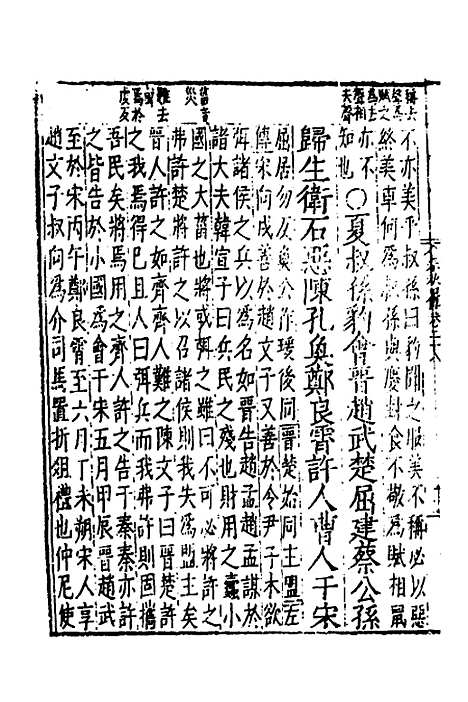 稱去
聲爲
賦之
爲去
聲相
去聲
菑音
災
難去
聲
焉於
虔反
不亦美乎叔孫曰豹聞之服美不稱必以惡
終美車何爲叔孫與慶封食不敬爲賦相鼠
亦不知也○夏叔孫豹會晉趙武楚屈建蔡公孫
歸生衛石惡陳孔奐鄭良霄許人曹人于宋
屈居勿反奐公作瑗後同晉楚始同主盟左
傳宋向戌善於趙文子又善於令尹子木欲
弭諸侯之兵以爲名如晉告趙孟趙孟謀於
諸大夫韓宣子曰兵民之殘也財用之蠹小
國之大菑也將或弭之雖曰不可必將許之
弗許楚將許之以召諸侯則我失爲盟主矣
晉人許之如齊齊人難之陳文子曰晉楚許
之我焉得已且人曰弭兵而我弗許則固攜
吾民矣將焉用之齊人許之告于秦秦亦許
之皆告於小國爲會于宋五月甲辰晉趙武
至於宋丙午鄭良霄至六月丁未朔宋人享
趙文子叔向爲介司馬置折俎禮也仲尼使